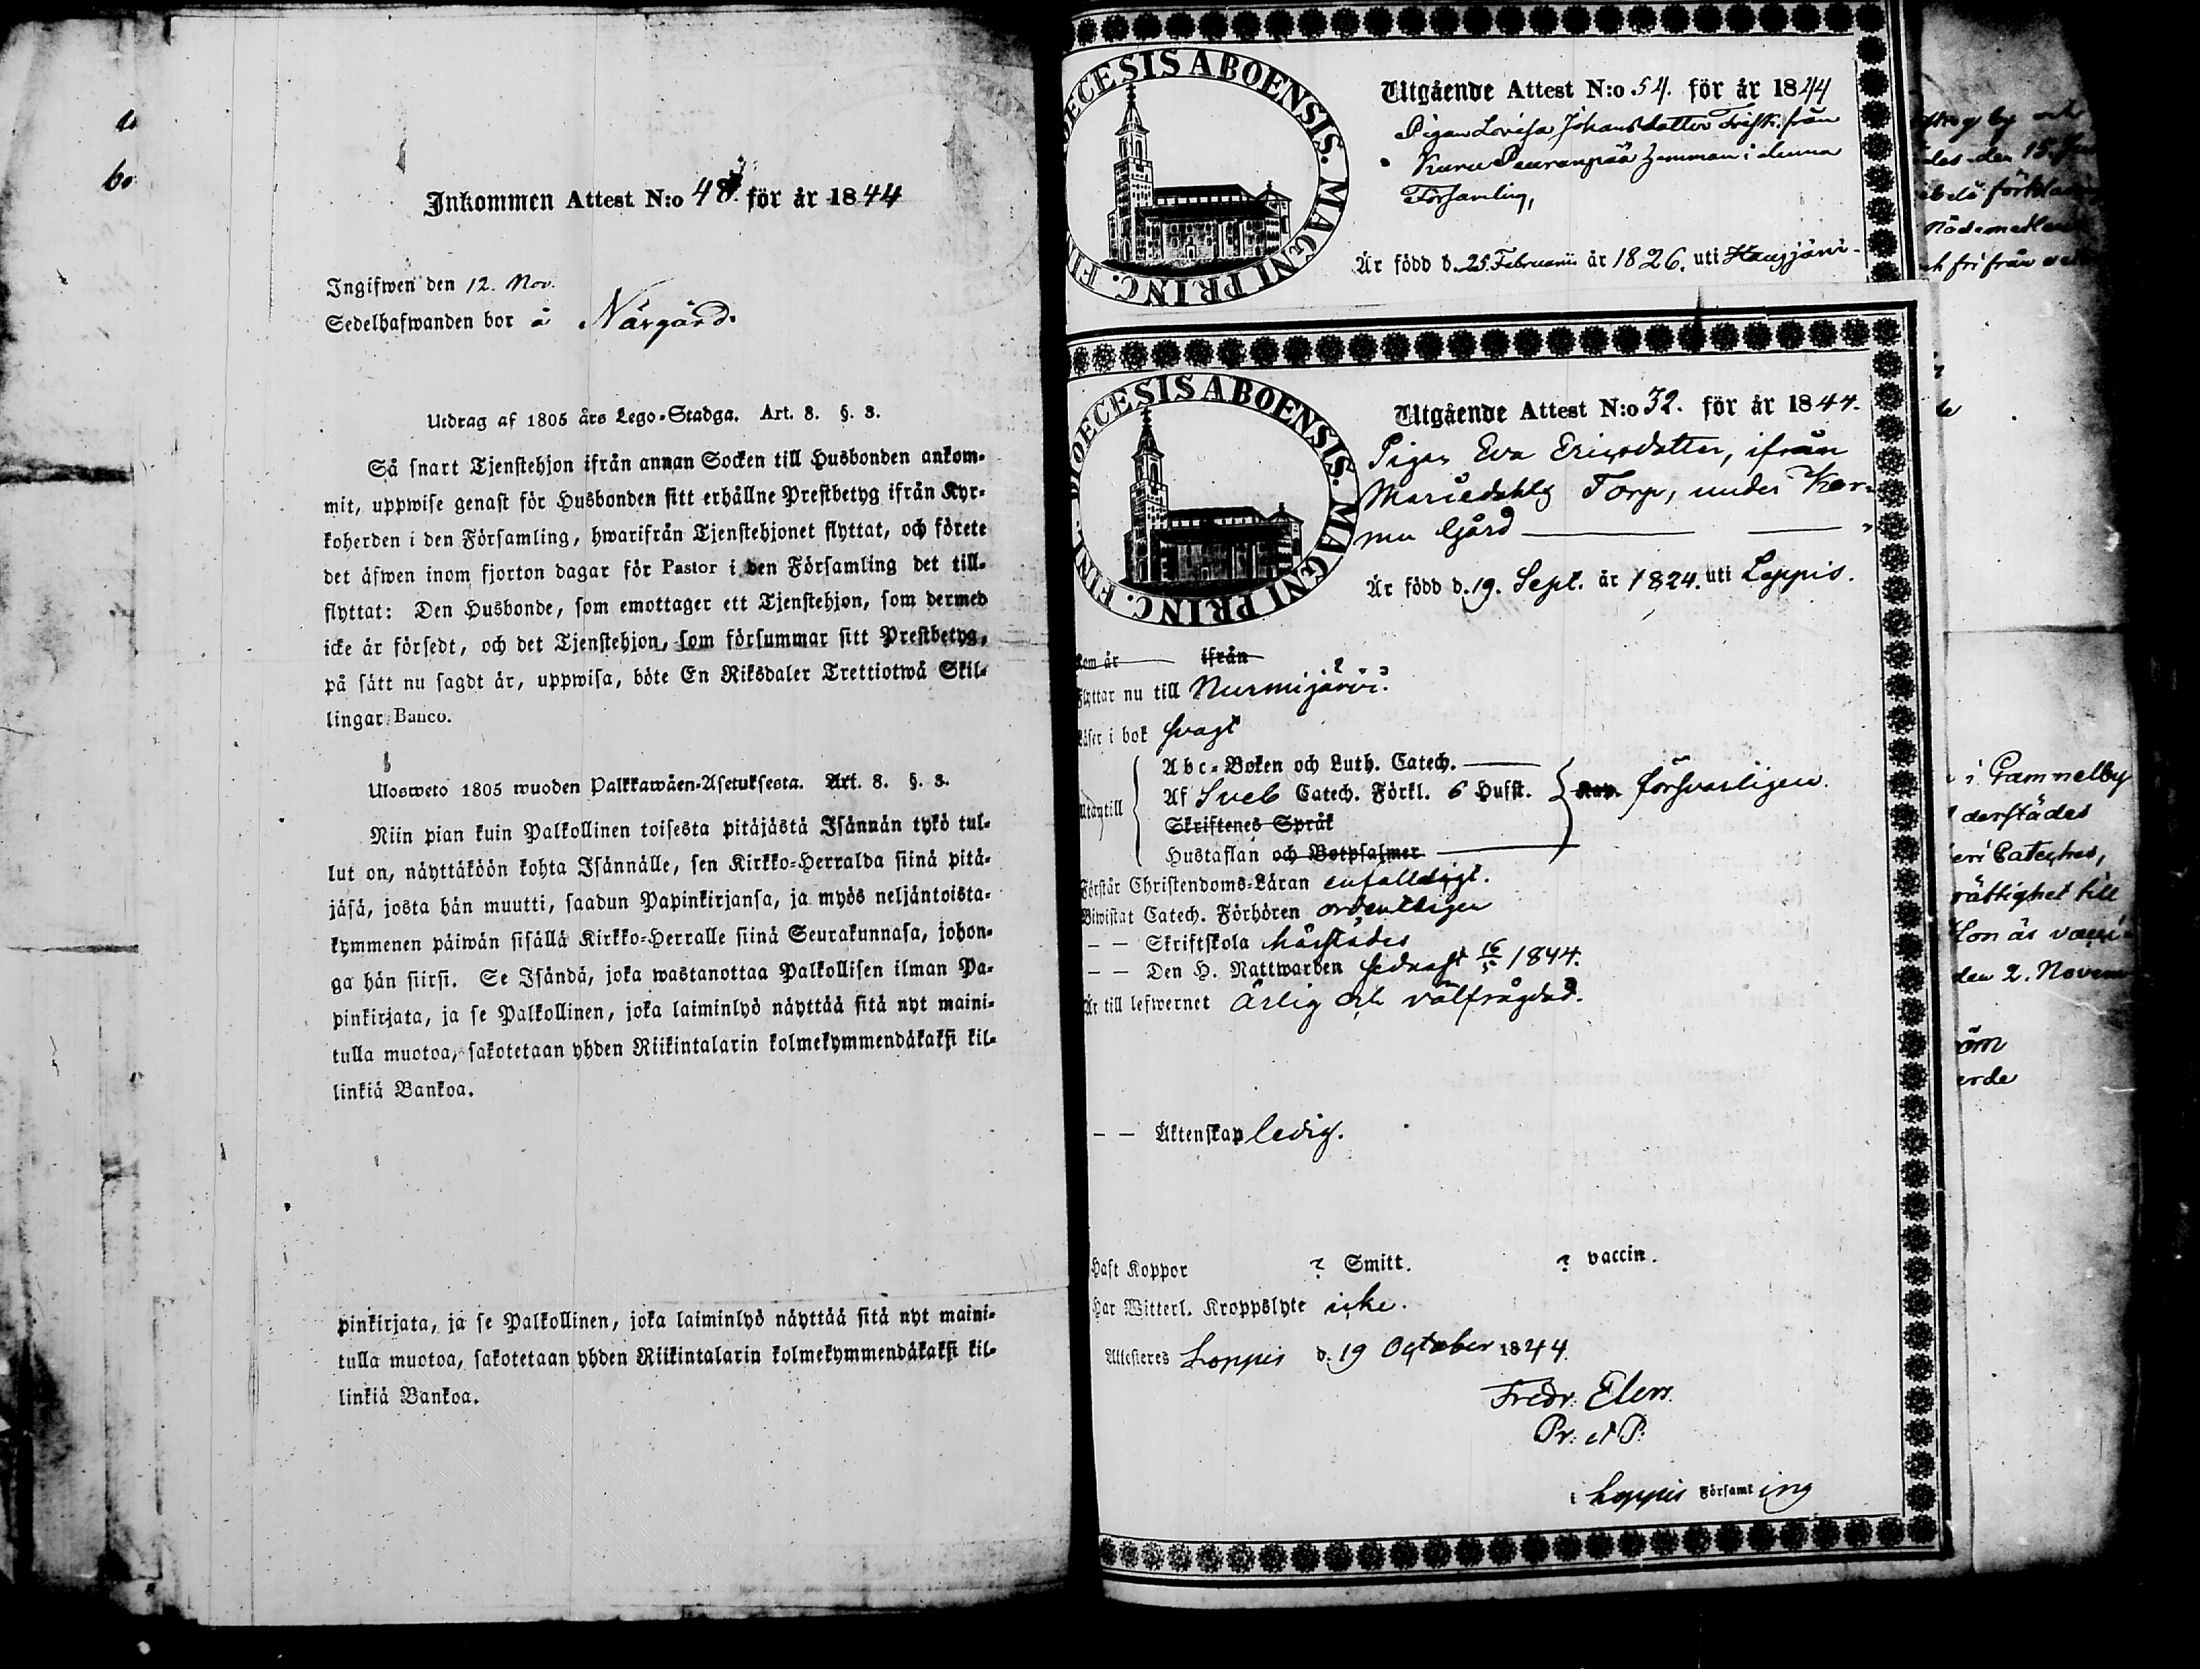 Inkommen Attest N:o 48. för år 1844
Ingifwen den 12. Nov.
Sedelhafwanden bor å Närgård.
Utdrag af 1805 års Lego-Stadga. Art. 8. §. 3.
Så snart Tjenstehjon ifrån annan Socken till Husbonden ankom-
mit, uppwise genast för Husbonden sitt erhållne Prestbetyg ifrån Kyr-
koherden i den Församling, hwarifrån Tjenstehjonet flyttat, och förete
det äfwen inom fjorton dagar för Pastor i den Församling det till-
flyttat: Den Husbonde, som emottager ett Tjenstehjon, som dermed
icke är försedt, och det Tjenstehjon, som försummar sitt Prestbetyg,
på sätt nu sagdt är, uppwisa, böte En Riksdaler Trettiotwå Skil-
lingar Banco.
Ulosweto 1805 wuoden Palkkawäen-Asetuksesta. Art. 8. §. 3.
Niin pian kuin Palkollinen toisesta pitäjästä Isännän tykö tul-
lut on, näyttäköön kohta Isännälle, sen Kirkko-Herralda siinä pitä-
jäsä, josta hän muutti, saadun Papinkirjansa, ja myös neljäntoista-
kymmenen päiwän sisällä Kirkko-Herralle siinä Seurakunnasa, johon-
ga hän siirsi. Se Isändä, joka wastanottaa Palkollisen ilman Pa-
pinkirjata, ja se Palkollinen, joka laiminlyö näyttää sitä nyt maini-
tulla muotoa, sakotetaan yhden Riikintalarin kolmekymmendäkaksi kil-
linkiä Bankoa.
pinkirjata, ja se Palkollinen, joka laiminlyö näyttää sitä nyt maini-
tulla muotoa, sakotetaan yhden Riikintalarin kolmekymmendäkaksi kil-
linkiä Bankoa.
DIOECESIS ABOENSIS. MAGNI PRINC. FI
Utgående Attest N:o 54. för år 1844
Pigan Lovisa Johansdotter från
Kuru hemman i denna
Församling,
Är född d. 25. Februarii år 1826. uti Hausjärvi
DIOECESIS ABOENSIS. MAGNI PRINC. FIN
Utgående Attest N:o 32. för år 1844.
Pigan Eva Ericsdotter, ifrån
Mariedahls Torp, under Kor-
mu Gård
Är född d. 19. Sept. år 1824. uti Loppis.
Kom år ifrån
Flyttar nu till Nurmijärvi.
Läser i bok svagt
Utantill
Abc-Boken och Luth. Catech.
Af Sveb Catech. Förkl. 6 Hufst. försvarligen.
Skriftenes Språk
Hustaflan och Botpsalmer
Förstår Christendoms-Läran enfaldigt.
Biwistat Catech. Förhören ordentligen
— — Skriftskola härstädes
— — Den H. Nattwarden sednast 16/5 1844.
Är till lefwernet Ärlig och välfrägdad.
— — Äktenskap ledig.
Haft Koppor ? Smitt. ? vaccin.
Har Witterl. Kroppslyte icke.
Attesteres Loppis d. 19 October 1844.
Fredr. Elers.
Pr: et P:
i Loppis Församling
den 15.
i Gammelby
derstädes
rättighet till
den 2. Novem